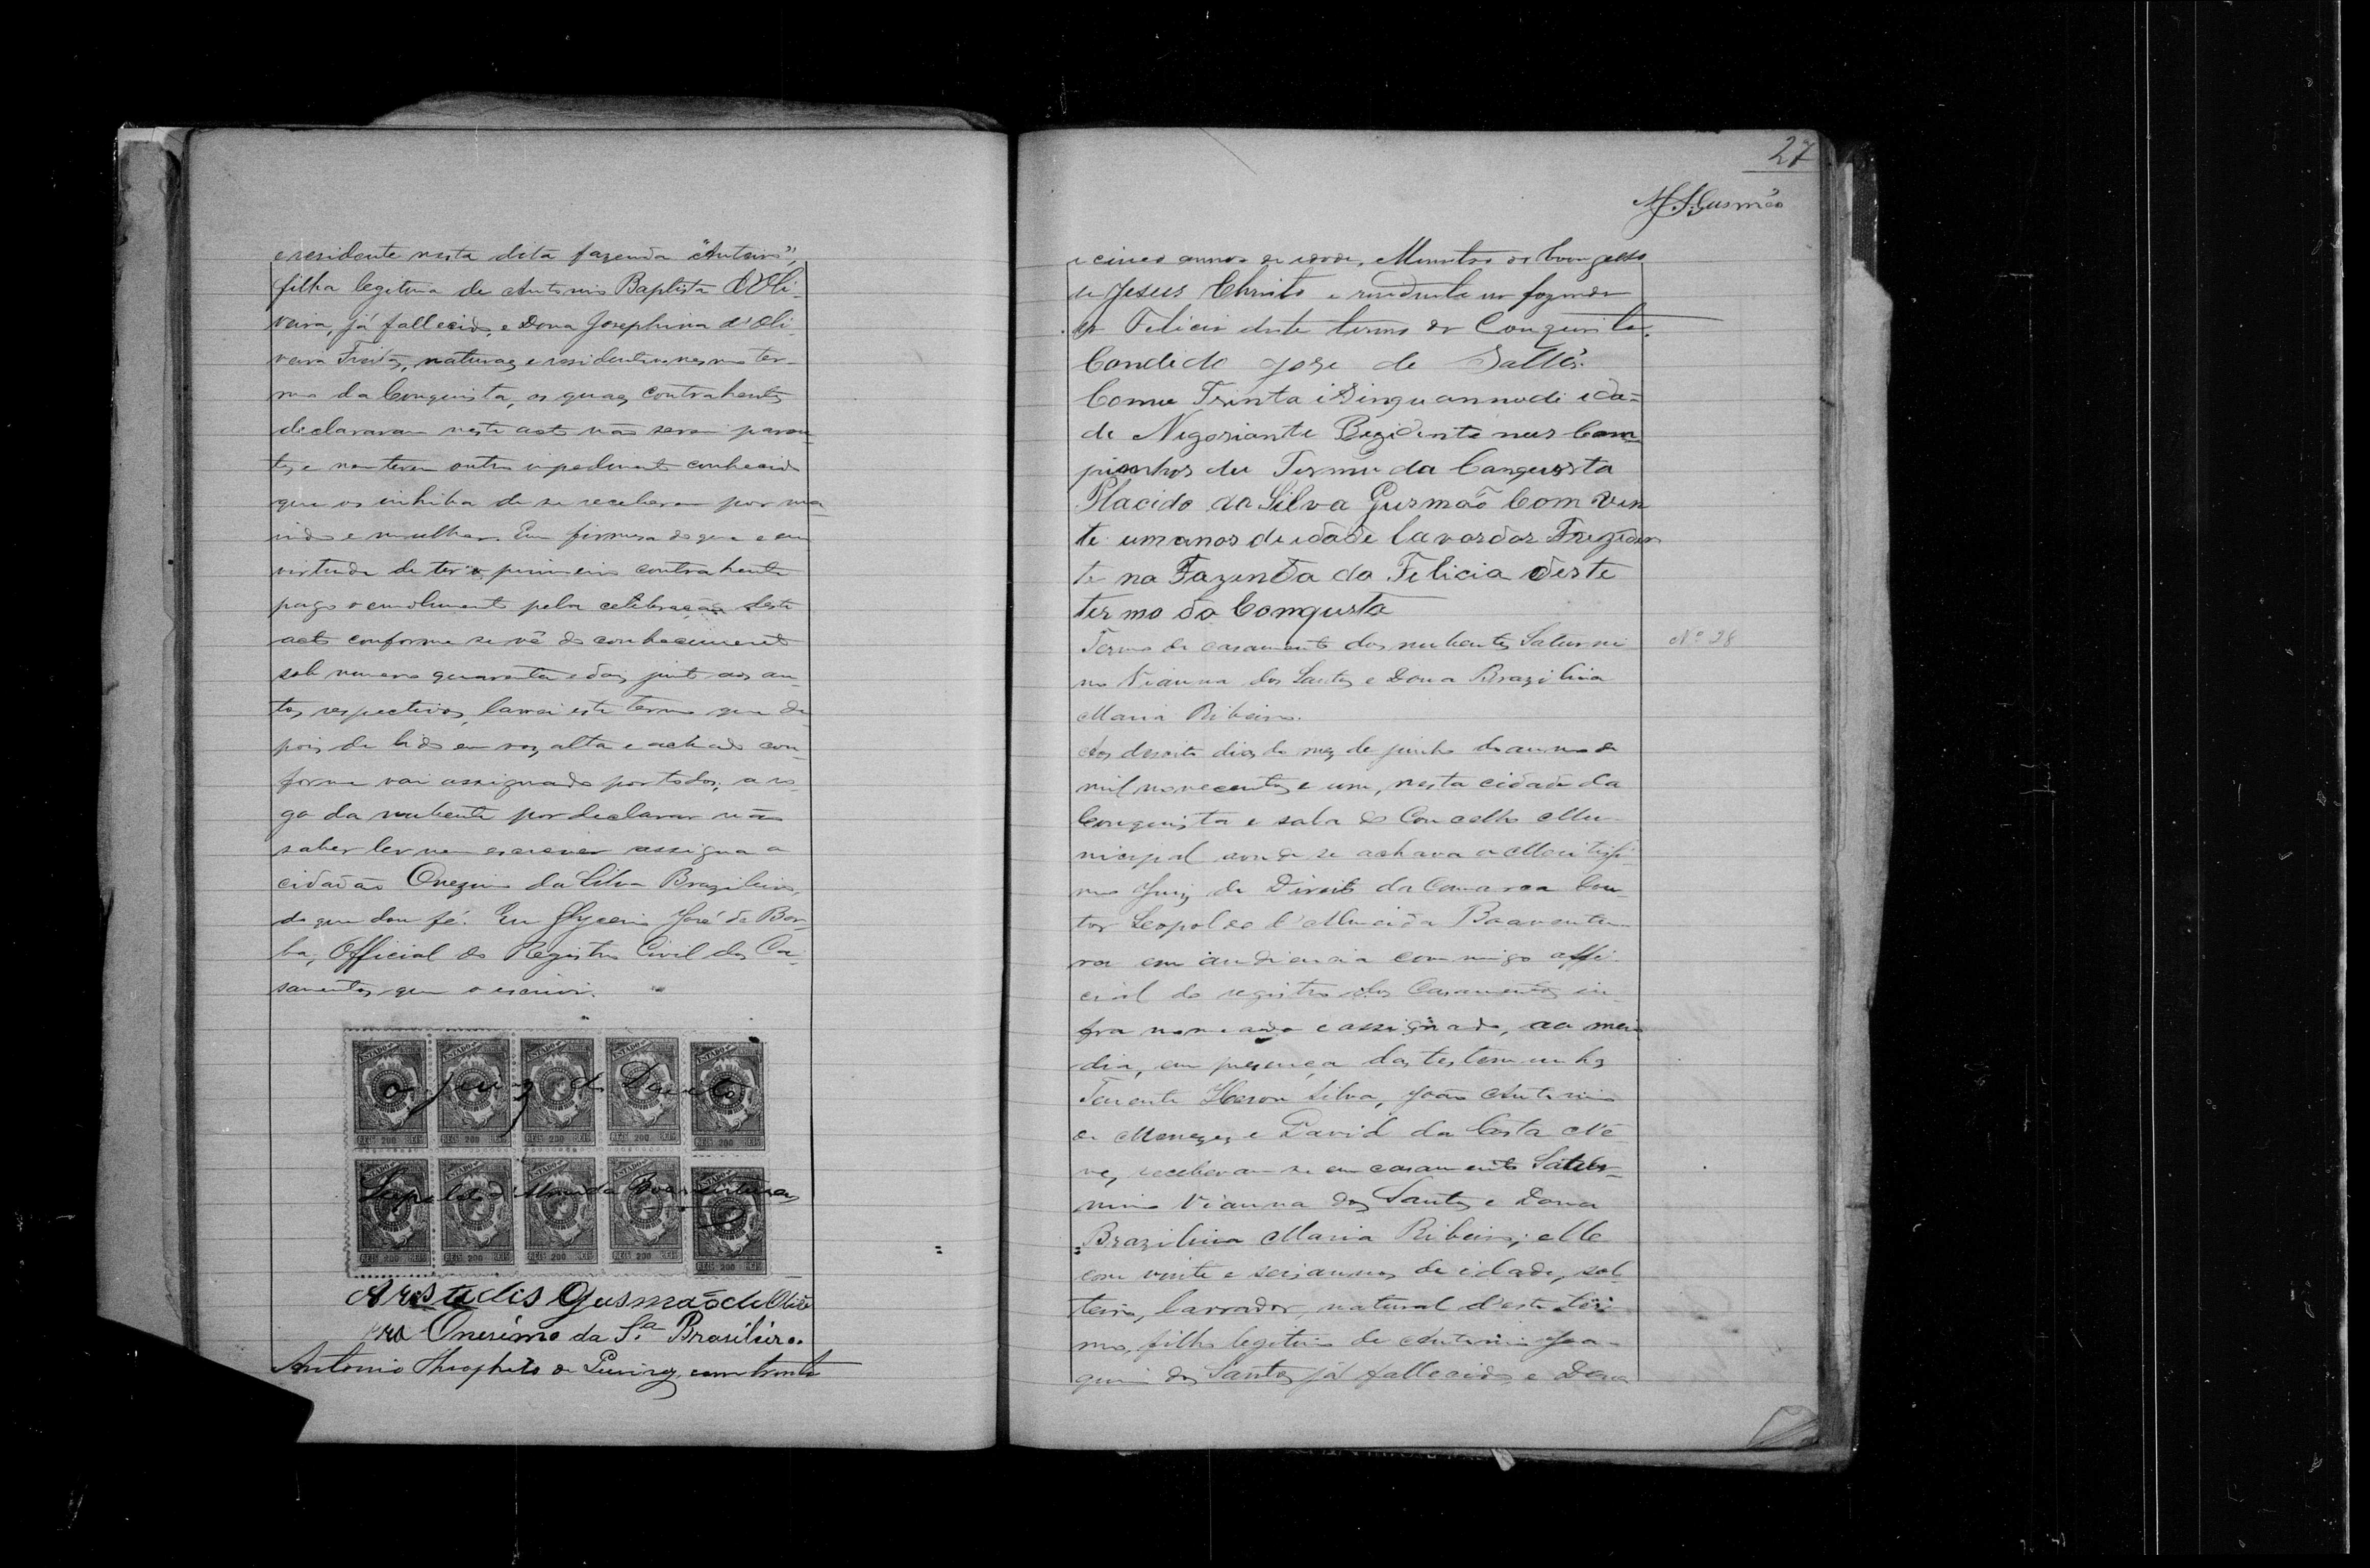 e residente nesta dita fazenda "Anteiro",
filha legitima de Antonio Baptista d'Oli-
veira, já fallecido, e Dona Josephina d'Oli-
veira Freitas, naturaes e residentes nesmo ter-
mo da Conquista, os quaes contrahentes
declararam neste acto não serem paren-
tes, e nem terem outro impedimento conhecido
que os inhiba de se receberem por ma-
rido e mulher. Em firmesa do que e em
virtude de ter o primeiro contrahente
pago o emolumento pela celebração deste
acto conforme se vê do conhecimento
sob numero quarenta e dois junto aos au-
tos respectivos, lavrei este termo que de-
pois de lido em voz alta e achado con-
forme vai assignado por todos; a ro-
go da nubente por declarar não
saber ler nem escrever assigna o
cidadão Onezimo da Silva Brazileiro,
do que dou fé. Eu Glycerio José de Bor-
ba, Official do Registro Civil dos Ca-
samentos que o escrevi.
ESTADO
REIS 200 REIS
o juiz de Direito
Leopoldo d'Almeida Boaventura
Aristidis Gusmão de Olivei
ra Onesimo da Sª Brasiliéro.
Antonio Theophilo de Queiroz, com trinta
27
M. S. Gusmão
e cinco annos de idade, Ministro do Evangelho
de Jesus Christo e residente na fazenda
da Felicia deste termo da Conquista.
Candido Jose de Salles
Come Trinta i Sinqu annudi ida=
de Negosiante Rezidente nus Cam
pinhos du Termu da Conquista
Placido da Silva Gusmão Com vin
te umanos de idade lavardor Freziden
te na Fazenda da Felicia deste
termo da Comqusta
Termo de casamento dos nubentes Saturni
no Vianna dos Santos e Dona Brazilina
Maria Ribeiro.
Nº 38
Aos desoito dias do mez de junho do anno de
mil novecentos e um, nesta cidade da
Conquista e sala do Concelho Mu-
nicipal aonde se achava o Meritissi-
mo Juiz de Direito da Comarca Dou-
tor Leopoldo d'Almeida Boaventu-
ra em audiencia commigo offi-
cial do registro dos Casamentos in-
fra nomeado e assignado, ao meio
dia, em presença das testemunhas
Tenente Heron Silva, João Antonio
de Menezes e David da Costa Ne-
ves, receberam-se em casamento Satur-
nino Vianna dos Santos e Dona
Brazilina Maria Ribeiro; elle
com vinte e seis annos de idade, sol-
teiro, lavrador, natural d'este ter-
mo, filho legitimo de Antonio Joa-
quim dos Santos já fallecido e Dona